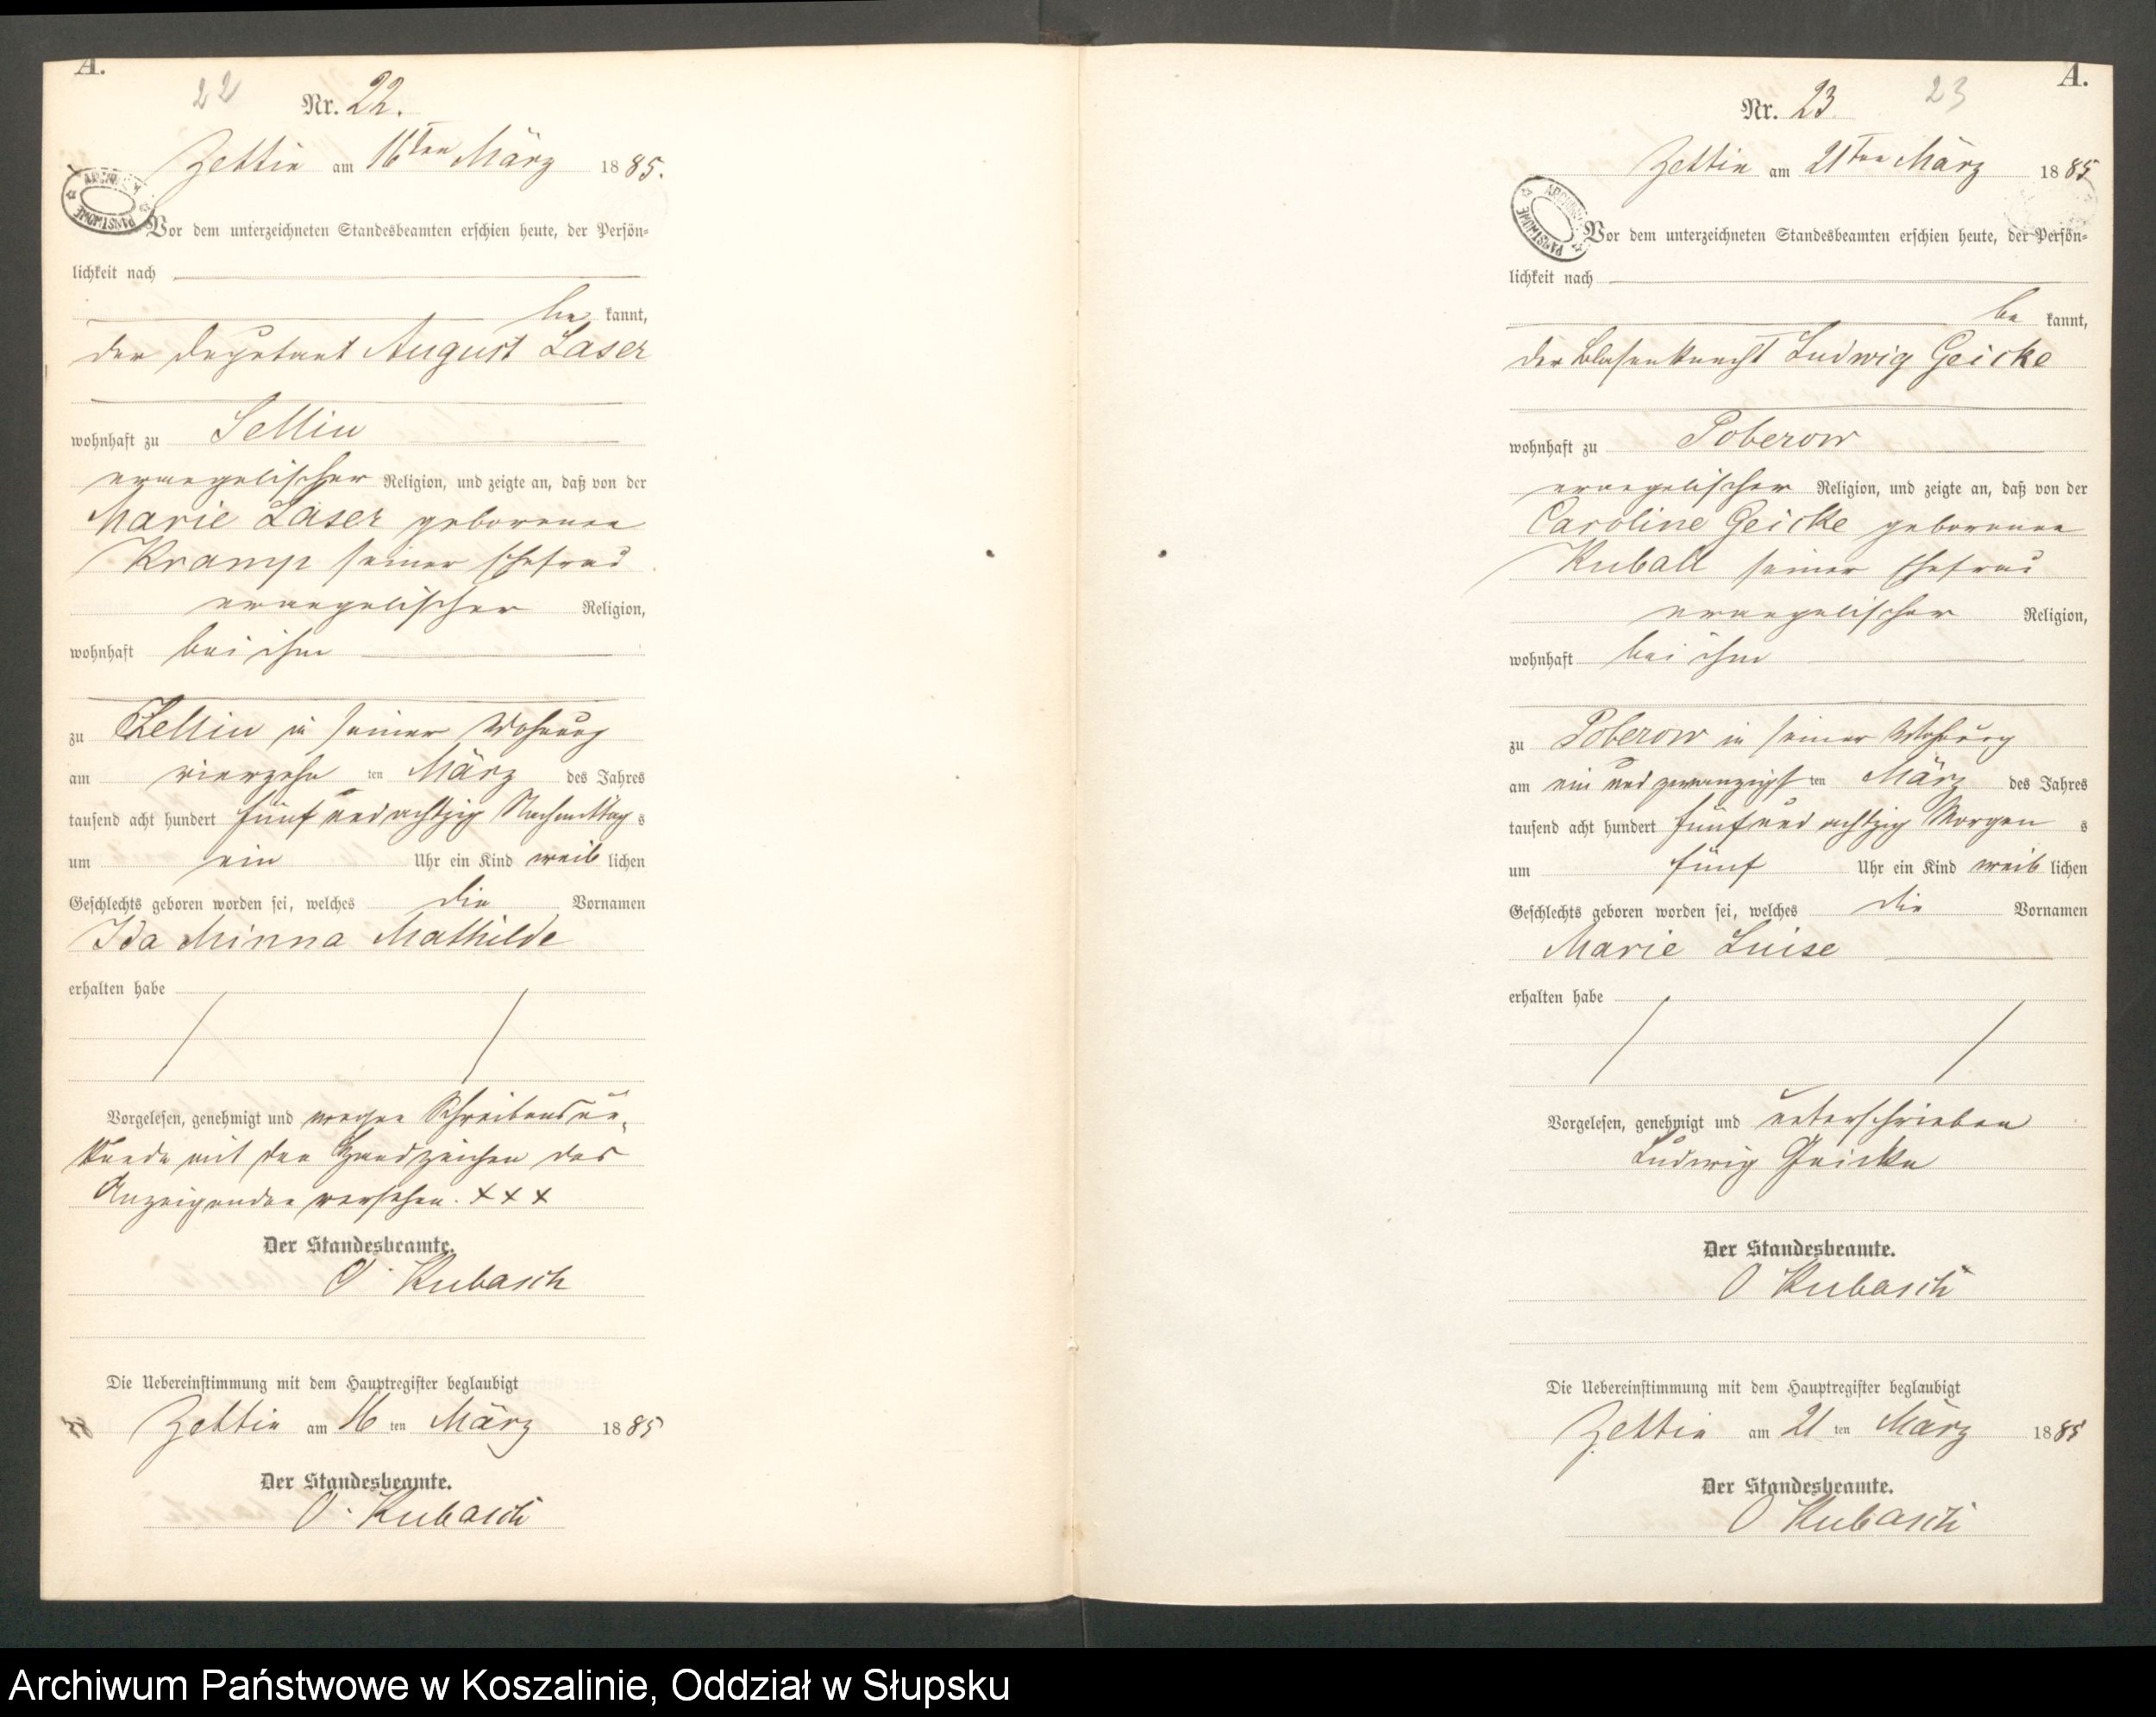 A.
22
Nr. 22.
Zettin am 16ten März 1885.
Vor dem unterzeichneten Standesbeamten erschien heute, der Persön=
lichkeit nach
be kannt,
der Deputant August Laser
wohnhaft zu Sellin
evangelischer Religion, und zeigte an, daß von der
Marie Laser geborenen
Kramp seiner Ehefrau
evangelischer Religion,
wohnhaft bei ihm
zu Sellin in seiner Wohnung
am vierzehn ten März des Jahres
tausend acht hundert fünf und achtzig Nachmittag s
um ein Uhr ein Kind weib lichen
Geschlechts geboren worden sei, welches die Vornamen
Ida Minna Mathilde
erhalten habe
Vorgelesen, genehmigt und wegen Schreibensun=
kunde mit den Handzeichen des
Anzeigenden versehen. x x x
Der Standesbeamte.
O. Kubasch
Die Uebereinstimmung mit dem Hauptregister beglaubigt
Zettin am 16 ten März 1885
Der Standesbeamte.
O. Kubasch
A.
23
Nr. 23.
Zettin am 21ten März 1885
Vor dem unterzeichneten Standesbeamten erschien heute, der Persön=
lichkeit nach
be kannt,
der Blasenknecht Ludwig Geicke
wohnhaft zu Poberow
evangelischer Religion, und zeigte an, daß von der
Caroline Geicke geborenen
Kuball seiner Ehefrau
evangelischer Religion,
wohnhaft bei ihm
zu Poberow in seiner Wohnung
am ein und zwanzigst ten März des Jahres
tausend acht hundert fünf und achtzig Morgen s
um fünf Uhr ein Kind weib lichen
Geschlechts geboren worden sei, welches die Vornamen
Marie Luise
erhalten habe
Vorgelesen, genehmigt und unterschrieben
Ludwig Geicke
Der Standesbeamte.
O Kubasch
Die Uebereinstimmung mit dem Hauptregister beglaubigt
Zettin am 21 ten März 1885
Der Standesbeamte.
O Kubasch
Archiwum Państwowe w Koszalinie, Oddział w Słupsku